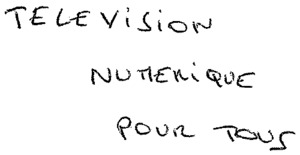 TELEVISION
NUMERIQUE
POUR TOUS